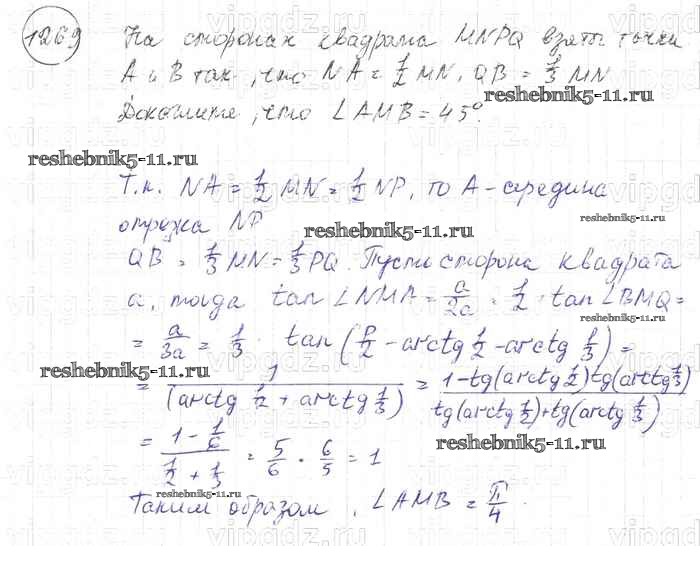 1269 На сторонах квадрата MNPQ взяты точки
A и B так, что NA = 1/2 MN, QB = 1/3 MN
Докажите, что ∠AMB = 45°.
reshebnik5-11.ru
reshebnik5-11.ru
Т.к. NA = 1/2 MN = 1/2 NP, то A - середина
reshebnik5-11.ru
отрезка NP
reshebnik5-11.ru
QB = 1/3 MN = 1/3 PQ. Пусть сторона квадрата
a, тогда tan ∠NMA = a/2a = 1/2. tan ∠BMQ =
= a/3a = 1/3. tan (P/2 - arctg 1/2 - arctg 1/3) =
reshebnik5-11.ru
= 1/(arctg 1/2 + arctg 1/3) = 1-tg(arctg 1/2)tg(arctg 1/3)/tg(arctg 1/2)+tg(arctg 1/3)
= 1 - 1/6 / 1/2 + 1/3 = 5/6 · 6/5 = 1
reshebnik5-11.ru
reshebnik5-11.ru
Таким образом, ∠AMB = π/4.